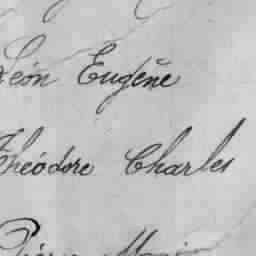 Léon Eugène
Théodore Charles